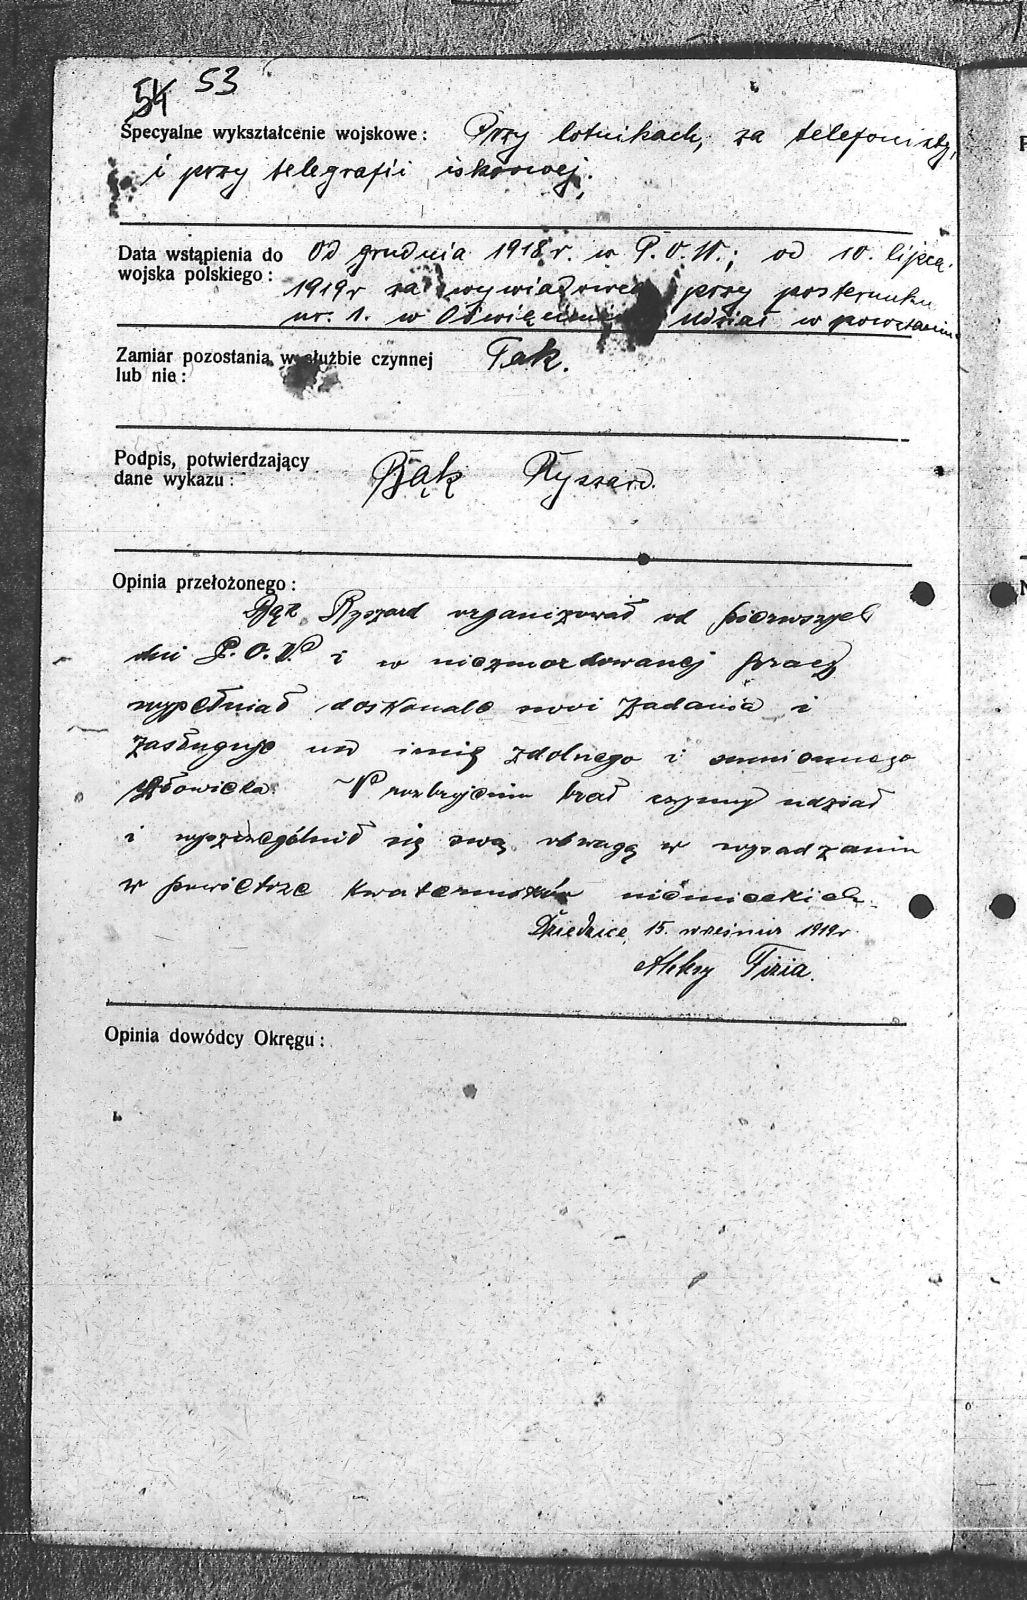 54 53
Specyalne wykształcenie wojskowe: Przy lotnikach, za telefonistę,
i przy telegrafii iskrowej.
Data wstąpienia do wojska polskiego: Od grudnia 1918 r. w P.O.W.; od 10. lipca
1919 r za wywiadowcę przy posterunku
nr. 1. w Oświęcimiu udział w powstaniu
Zamiar pozostania w służbie czynnej lub nie: Tak.
Podpis, potwierdzający dane wykazu: Bąk Ryszard.
Opinia przełożonego:
Bąk Ryszard organizował od pierwszych
dni P.O.W i w niezmordowanej pracy
wypełniał doskonale swoi zadania i
zasługuje na imię zdolnego i sumiennego
człowieka. W rozbrojeniu brał czynny udział
i wyszczególnił się swą odwagą w wysadzaniu
w powietrze kwaterunków niemieckich.
Dziedzice, 15. września 1919 r.
Aleksy Firia.
Opinia dowódcy Okręgu: